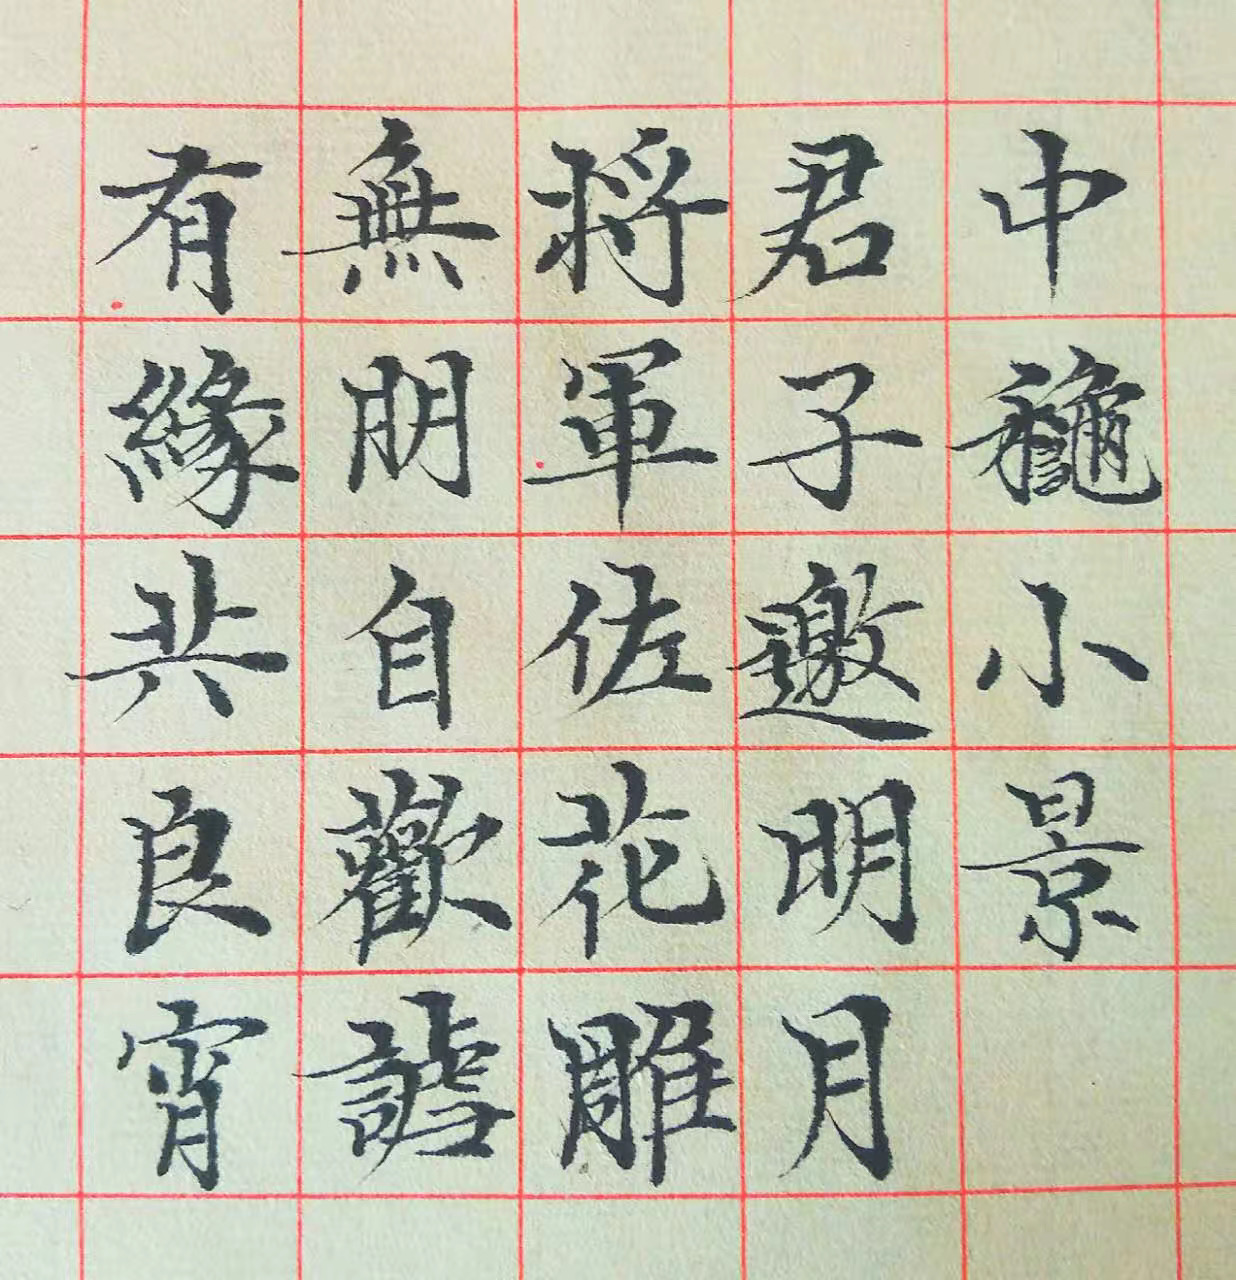 中龝小景
君子邀明月
將軍佐花雕
無朋自歡謔
有緣共良宵